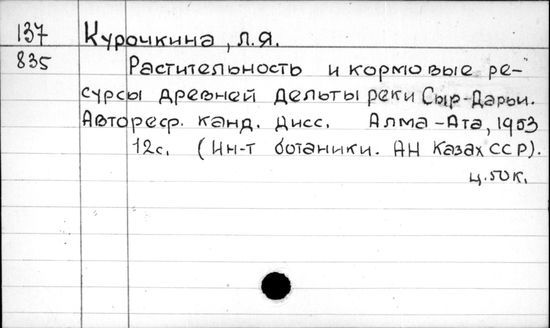 137 Курочкина, Л.Я.
835 Растительность и кормовые ре-
сурсы древней дельты реки Сыр-Дарьи.
Автореф. канд. дисс. Алма-Ата, 1953
12с. (Ин-т ботаники. АН КазахССР).
ц.50к.